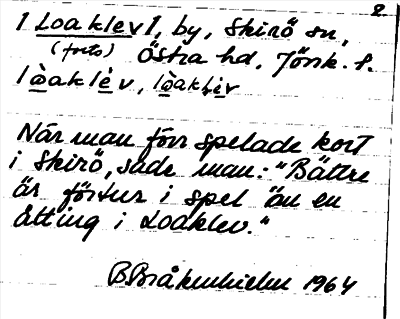 2
1 Loaklev 1, by, Skirö sn,
(forts) Östra hd, Jönk. l.
lòaklèv, lòaklèv
När man förr spelade kort
i Skirö, sade man: "Bättre
är förtur i spel än en
åtting i Loaklev."
B Bråkenhielm 1964